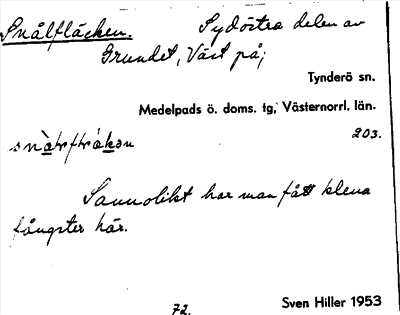 Snålfläcken. Sydöstra delen av
Grundet, Väst på;
Tynderö sn.
Medelpads ö. doms. tg, Västernorrl. län.
203.
Sannolikt har man fått klena
fångster här.
72. Sven Hiller 1953